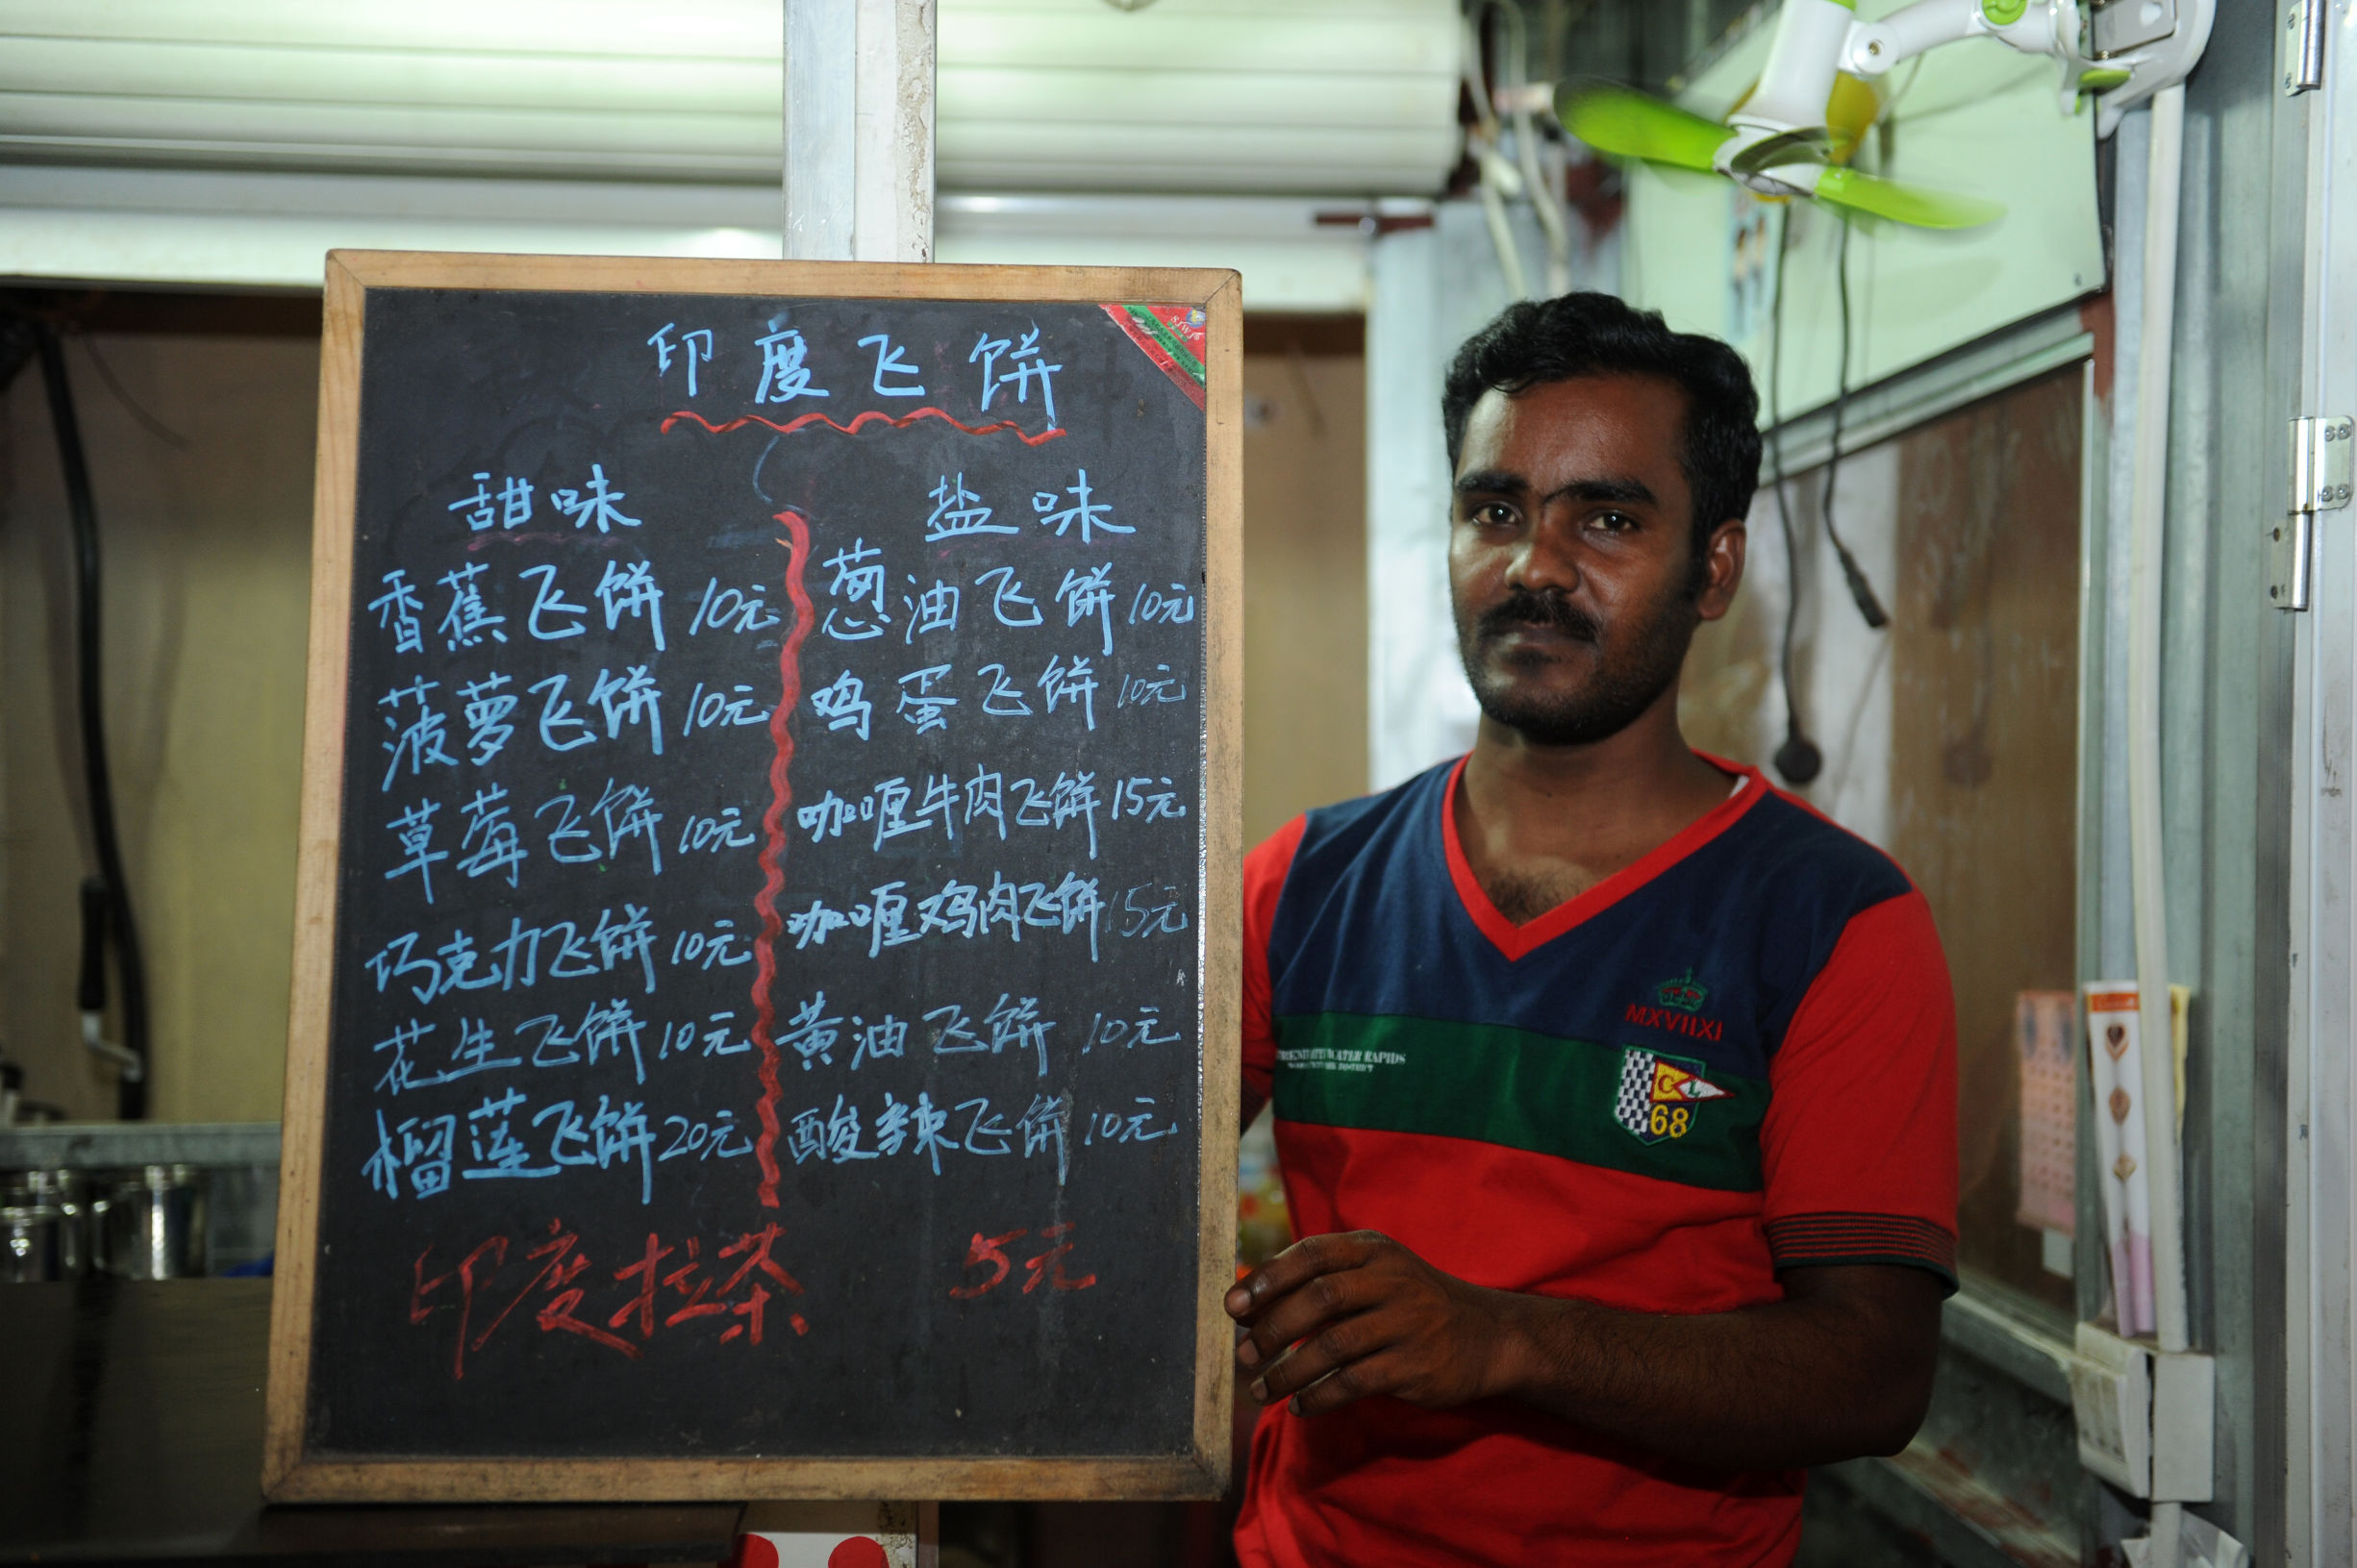 印度飞饼
甜味
香蕉飞饼 10元
菠萝飞饼 10元
草莓飞饼 10元
巧克力飞饼 10元
花生飞饼 10元
榴莲飞饼 20元
盐味
葱油飞饼 10元
鸡蛋飞饼 10元
咖喱牛肉飞饼 15元
咖喱鸡肉飞饼 15元
黄油飞饼 10元
酸辣飞饼 10元
印度拉茶 5元
MXVIIXI
CL
68